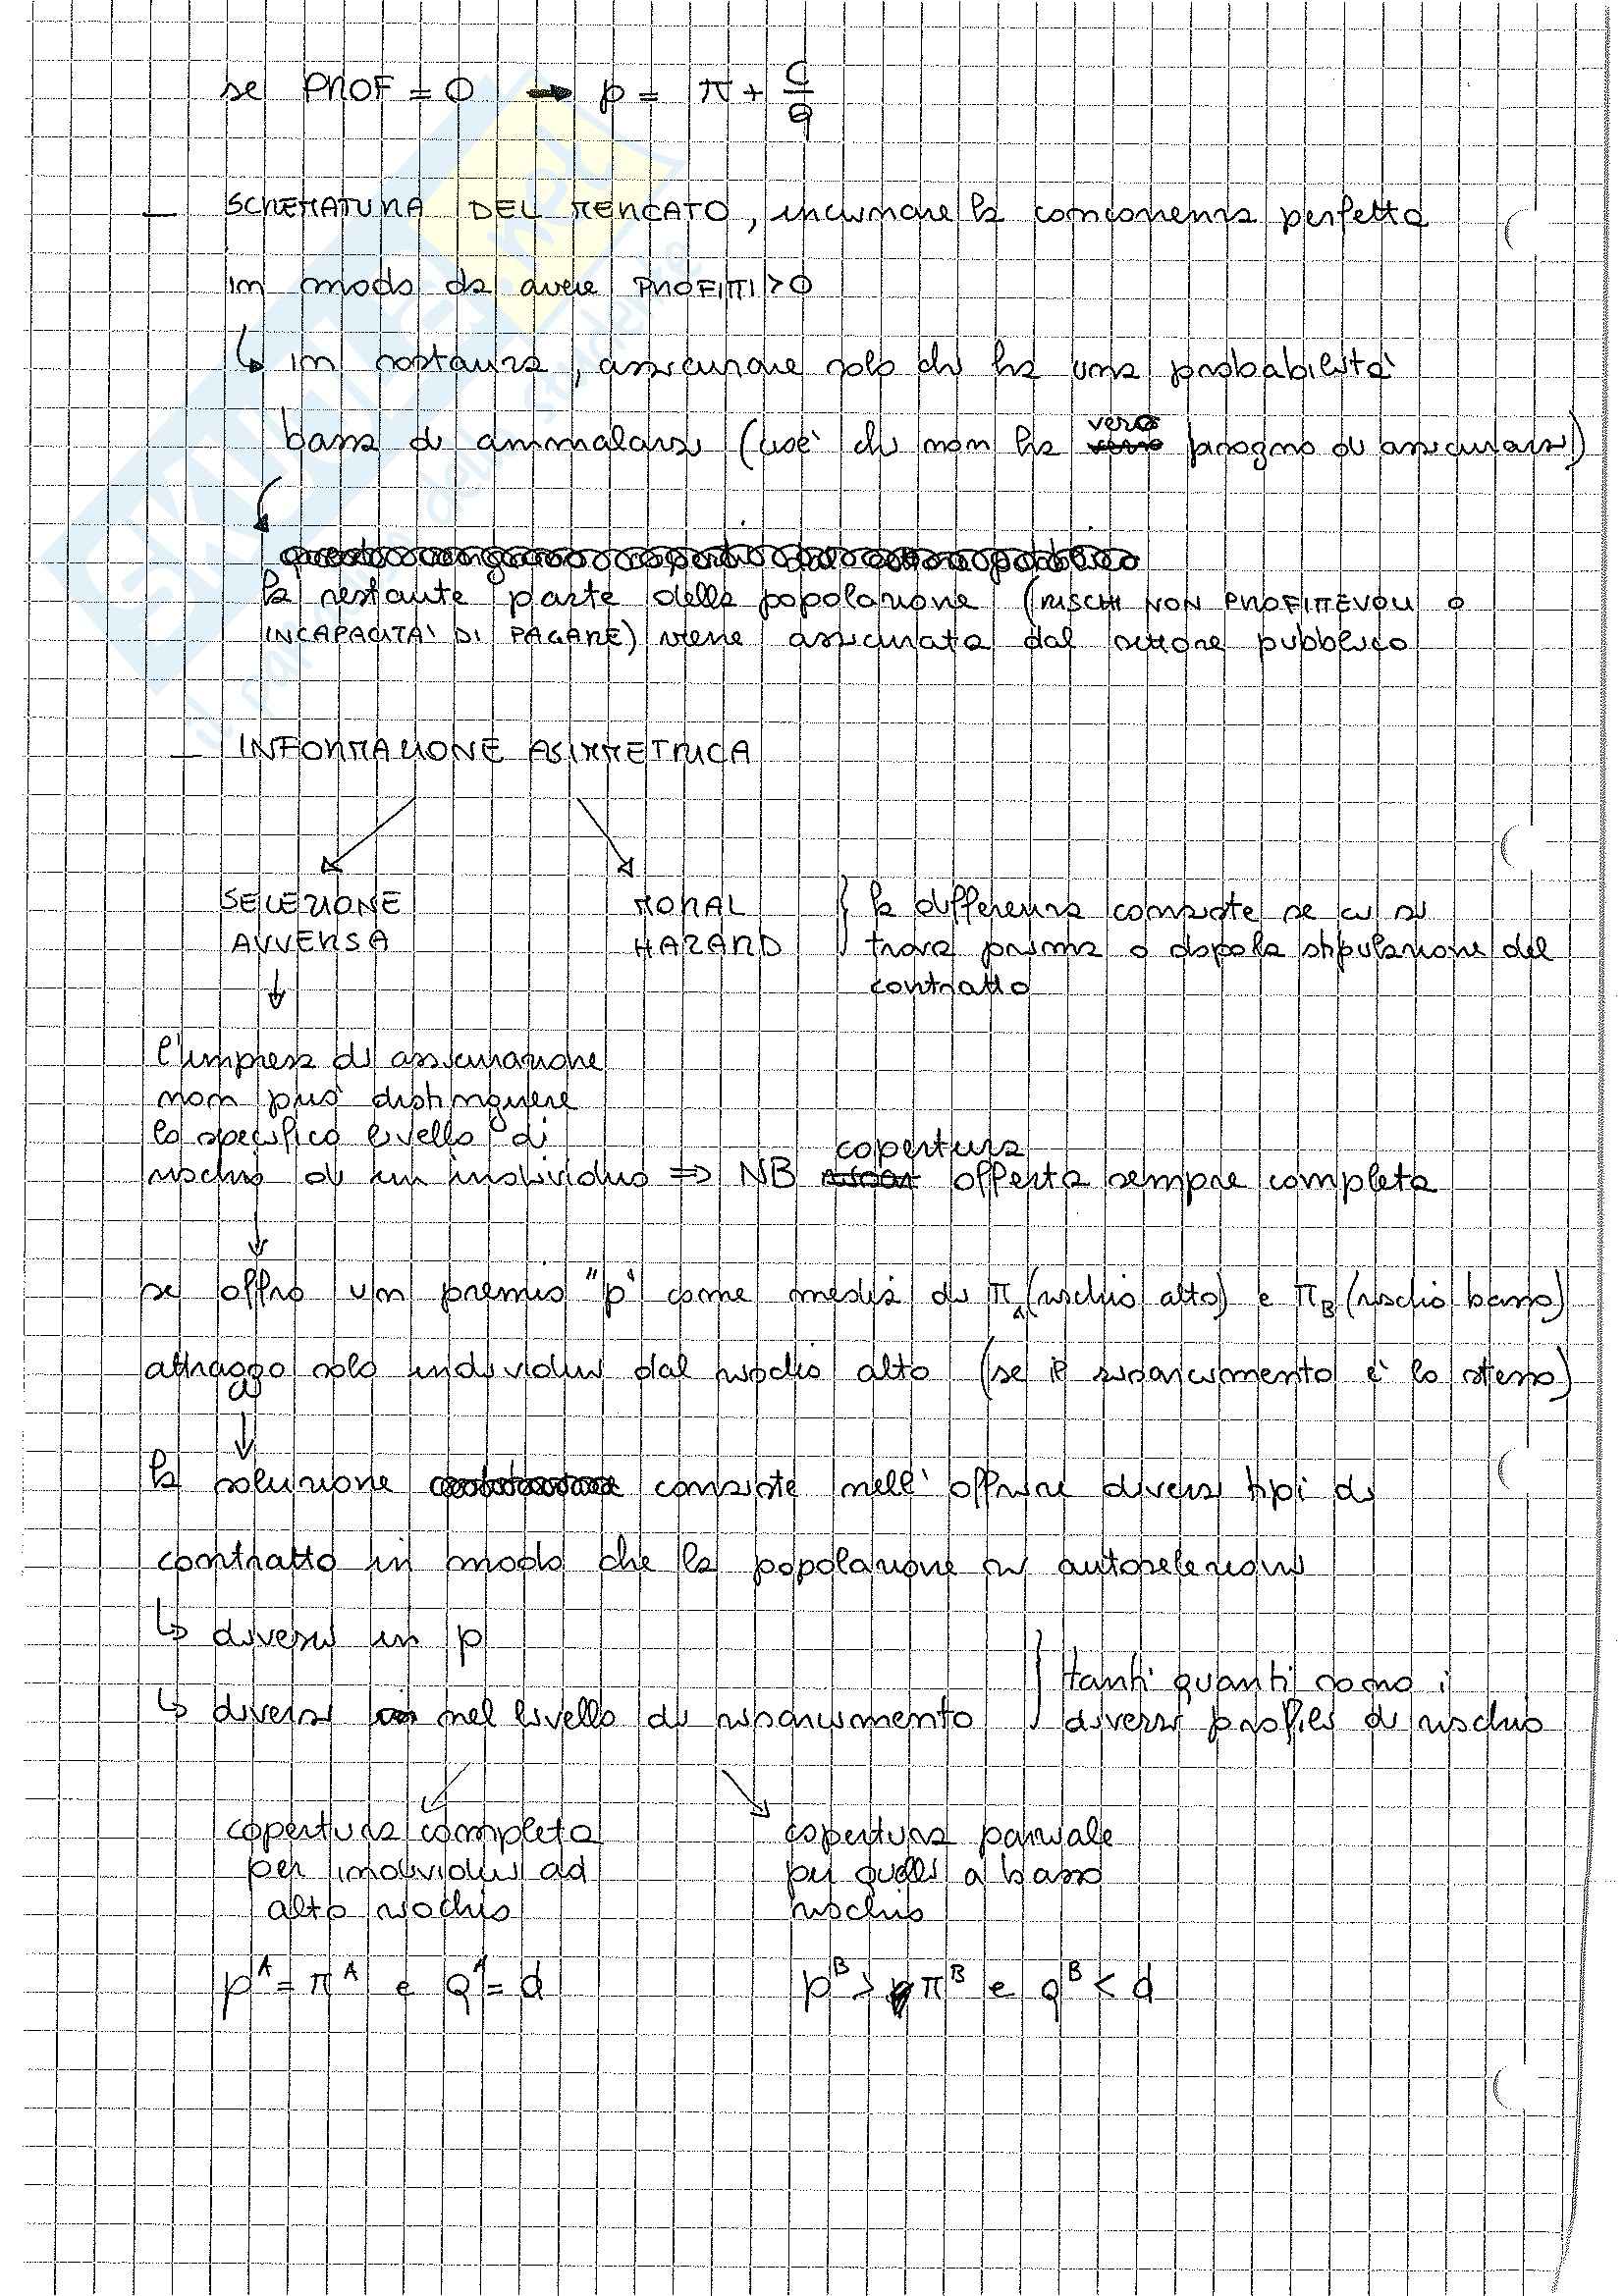 se PROF = 0 → p = π + C/q
– SCREMATURA DEL MERCATO, incrinare la concorrenza perfetta
in modo da avere PROFITTI > 0
↳ in sostanza, assicurare solo chi ha una probabilità
bassa di ammalarsi (cioè chi non ha vero bisogno di assicurarsi)
la restante parte della popolazione (RISCHI NON PROFITTEVOLI o
INCAPACITA' DI PAGARE) viene assicurata dal settore pubblico
– INFORMAZIONE ASIMMETRICA
SELEZIONE MORAL } la differenza consiste se ci si
AVVERSA HAZARD trova prima o dopo la stipulazione del
contratto
l'impresa di assicurazione
non può distinguere
lo specifico livello di
copertura
rischio di un individuo ⇒ NB offerta sempre completa
se offro un premio "p" come media di πA (rischio alto) e πB (rischio basso)
attraggo solo individui dal rischio alto (se il risarcimento è lo stesso)
la soluzione consiste nell'offrire diversi tipi di
contratto in modo che la popolazione si autoselezioni
↳ diversi in p
} tanti quanti sono i
↳ diversi nel livello di risarcimento diversi profili di rischio
copertura completa copertura parziale
per individui ad per quelli a basso
alto rischio rischio
p^A = π^A e q^A = d p^B > π^B e q^B < d